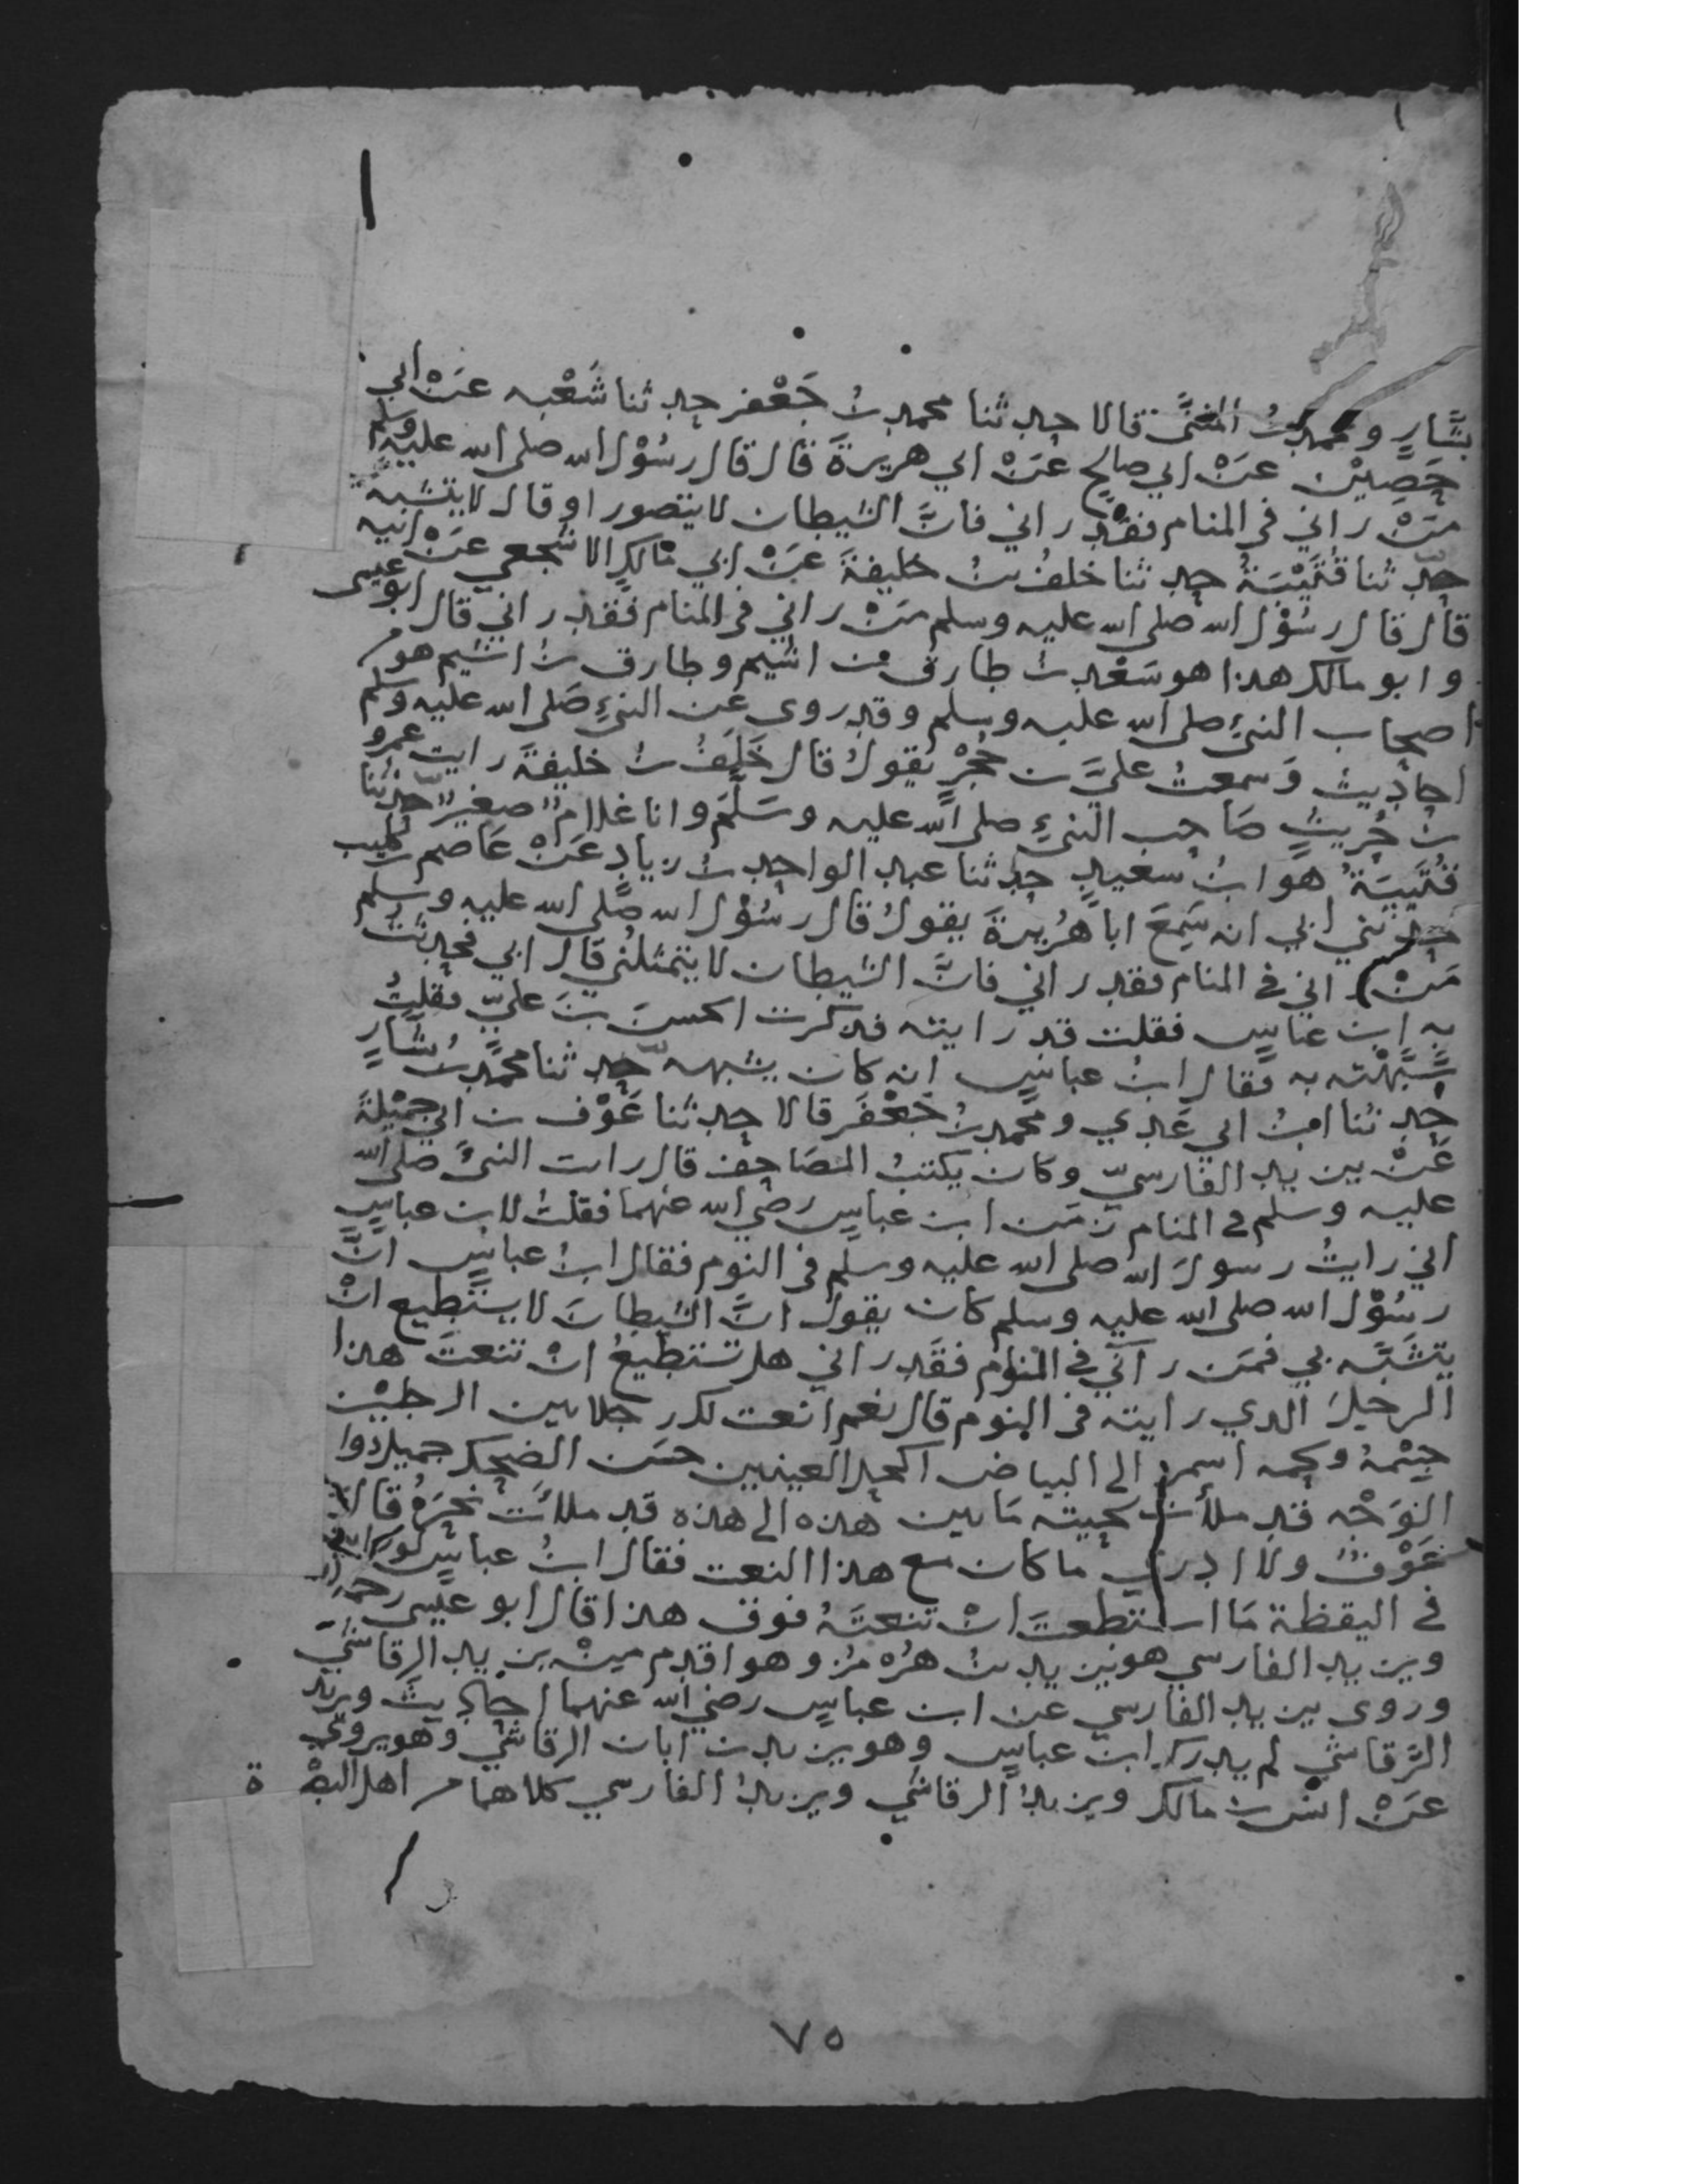 بشَّارٍ ومحمد بنُ المثنَّى قالا حدثنا محمد بنُ جَعْفر حدثنا شُعْبه عَنْ ابي
حَصِيْن عَنْ ابي صالحٍ عَنْ ابي هريرةَ قال قال رسُوْل الله صلى الله عليه وسلم
مَنْ راني في المنام فقد راني فانَّ الشيطان لا يتصور او قال لا يتشبه
حدّثنا قُتَيْبَةُ حدثنا خلفُ بنُ خليفةَ عَنْ ابي مَالكٍ الاشجعي عَنْ ابيه
قال قال رسُوْل الله صلى الله عليه وسلم مَنْ راني في المنام فقد راني قال ابو عيسى
وابو مالك هذا هو سَعْد بنُ طارق بن اشيم وطارق بنُ اشيم هو من
اصحاب النبيِّ صلى الله عليه وسلم وقد روى عَن النبيِّ صَلى الله عليه وسلم
احاديث وَسمعتُ عليَّ بن حُجْرٍ يقولُ قال خَلَفُ بنُ خليفةَ رايت عمرو
بن حُريثٍ صَاحب النبيِّ صلى الله عليه وسَلَّمَ وانا غلامٌ صغيرٌ حدّثنا
قتَيبَةُ هوَ ابنُ سَعيدٍ حدثنا عبد الواحد بنُ زيادٍ عَنْ عَاصم بن كليب
حدثني ابي انه سَمِعَ اباهُريرةَ يقولُ قال رسُوْل الله صَلى الله عليه وسلم
مَنْ راني في المنام فقد راني فانَّ الشيطان لا يتمثلُني قال ابي فحدثتُ
به ابن عباسٍ فقلت قد رايته فذكرت الحسنَ بنَ عليٍّ فقلتُ
شبَّهْتُه به فقال ابنُ عباسٍ انه كان يشبهه حدّثنا محمّد بنُ بشَّارٍ
حدثنا ابنُ ابي عَدي ومحمد بنُ جَعْفَر قالا حدثنا عَوْف بن ابي جميْلةَ
عَنْ يزيد الفارسيّ وكان يكتبُ المصَاحف قال رايت النبيَّ صلى الله
عليه وسلم في المنام زمَن ابن عباسٍ رضي الله عنهما فقلتُ لابن عباسٍ
اني رايتُ رسولَ الله صلى الله عليه وسلم في النوم فقال ابنُ عباسٍ انَّ
رسُوْل الله صلى الله عليه وسلم كان يقولُ انَّ الشيطانَ لا يستطيع انْ
يتشَبَّه بي فمَن رآني في النوم فقَد راني هل تستطيعُ انْ تنعتَ هذا
الرجلَ الذي رايته في النوم قال نعم انعت لك رجلا بين الرجليْن
جِسْمُهُ ولحمه اسمر الى البياض اكحل العينين حسَن الضحك جميل دوا
الوَجْه قد ملأت لحيته مَا بين هذه الى هذه قد ملأت نحرَهُ قال
عَوْفٌ ولا ادري ما كان مع هذا النعت فقال ابنُ عباسٍ لو رايته
في اليقظة مَا استطعتَ انْ تنعَتَهُ فوق هذا قال ابو عيسى
ويزيد الفارسي هو يزيد بنُ هُرْمُز وهو اقدم منْ يزيد الرقاشيّ
وروى يزيد الفارسي عن ابن عباسٍ رضي الله عنهما احاديثَ ويزيد
الرَّقاشي لم يدرك ابن عباسٍ وهو يزيد بن ابان الرقاشي وهو يروي
عَنْ انس بن مالك ويزيدُ الرقاشي ويزيدُ الفارسي كلاهما من اهل البصْرة
٧٥